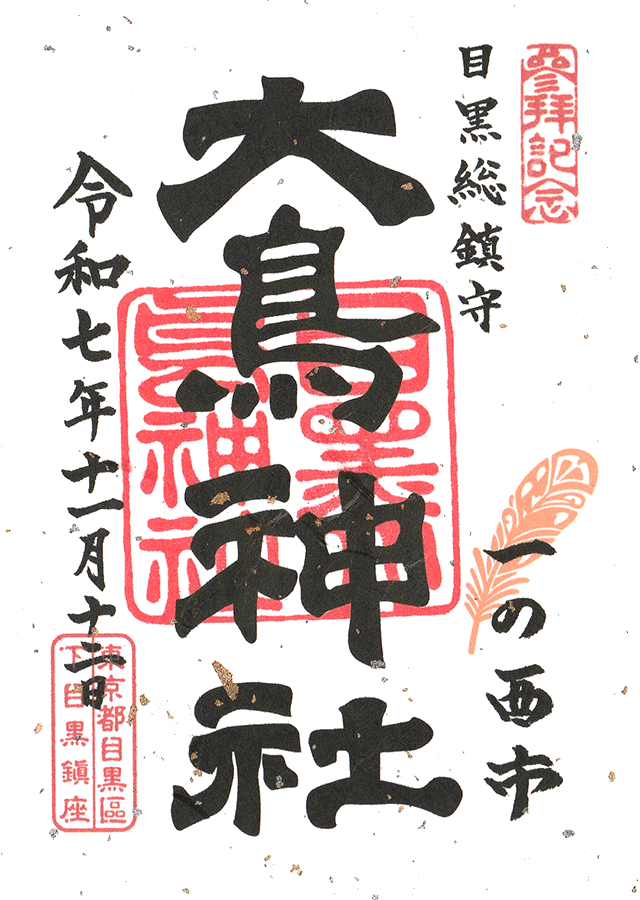 參拝記念
目黒総鎮守
一の酉市
大鳥神社
令和七年十一月十二日
東京都目黒區
下目黒鎮座